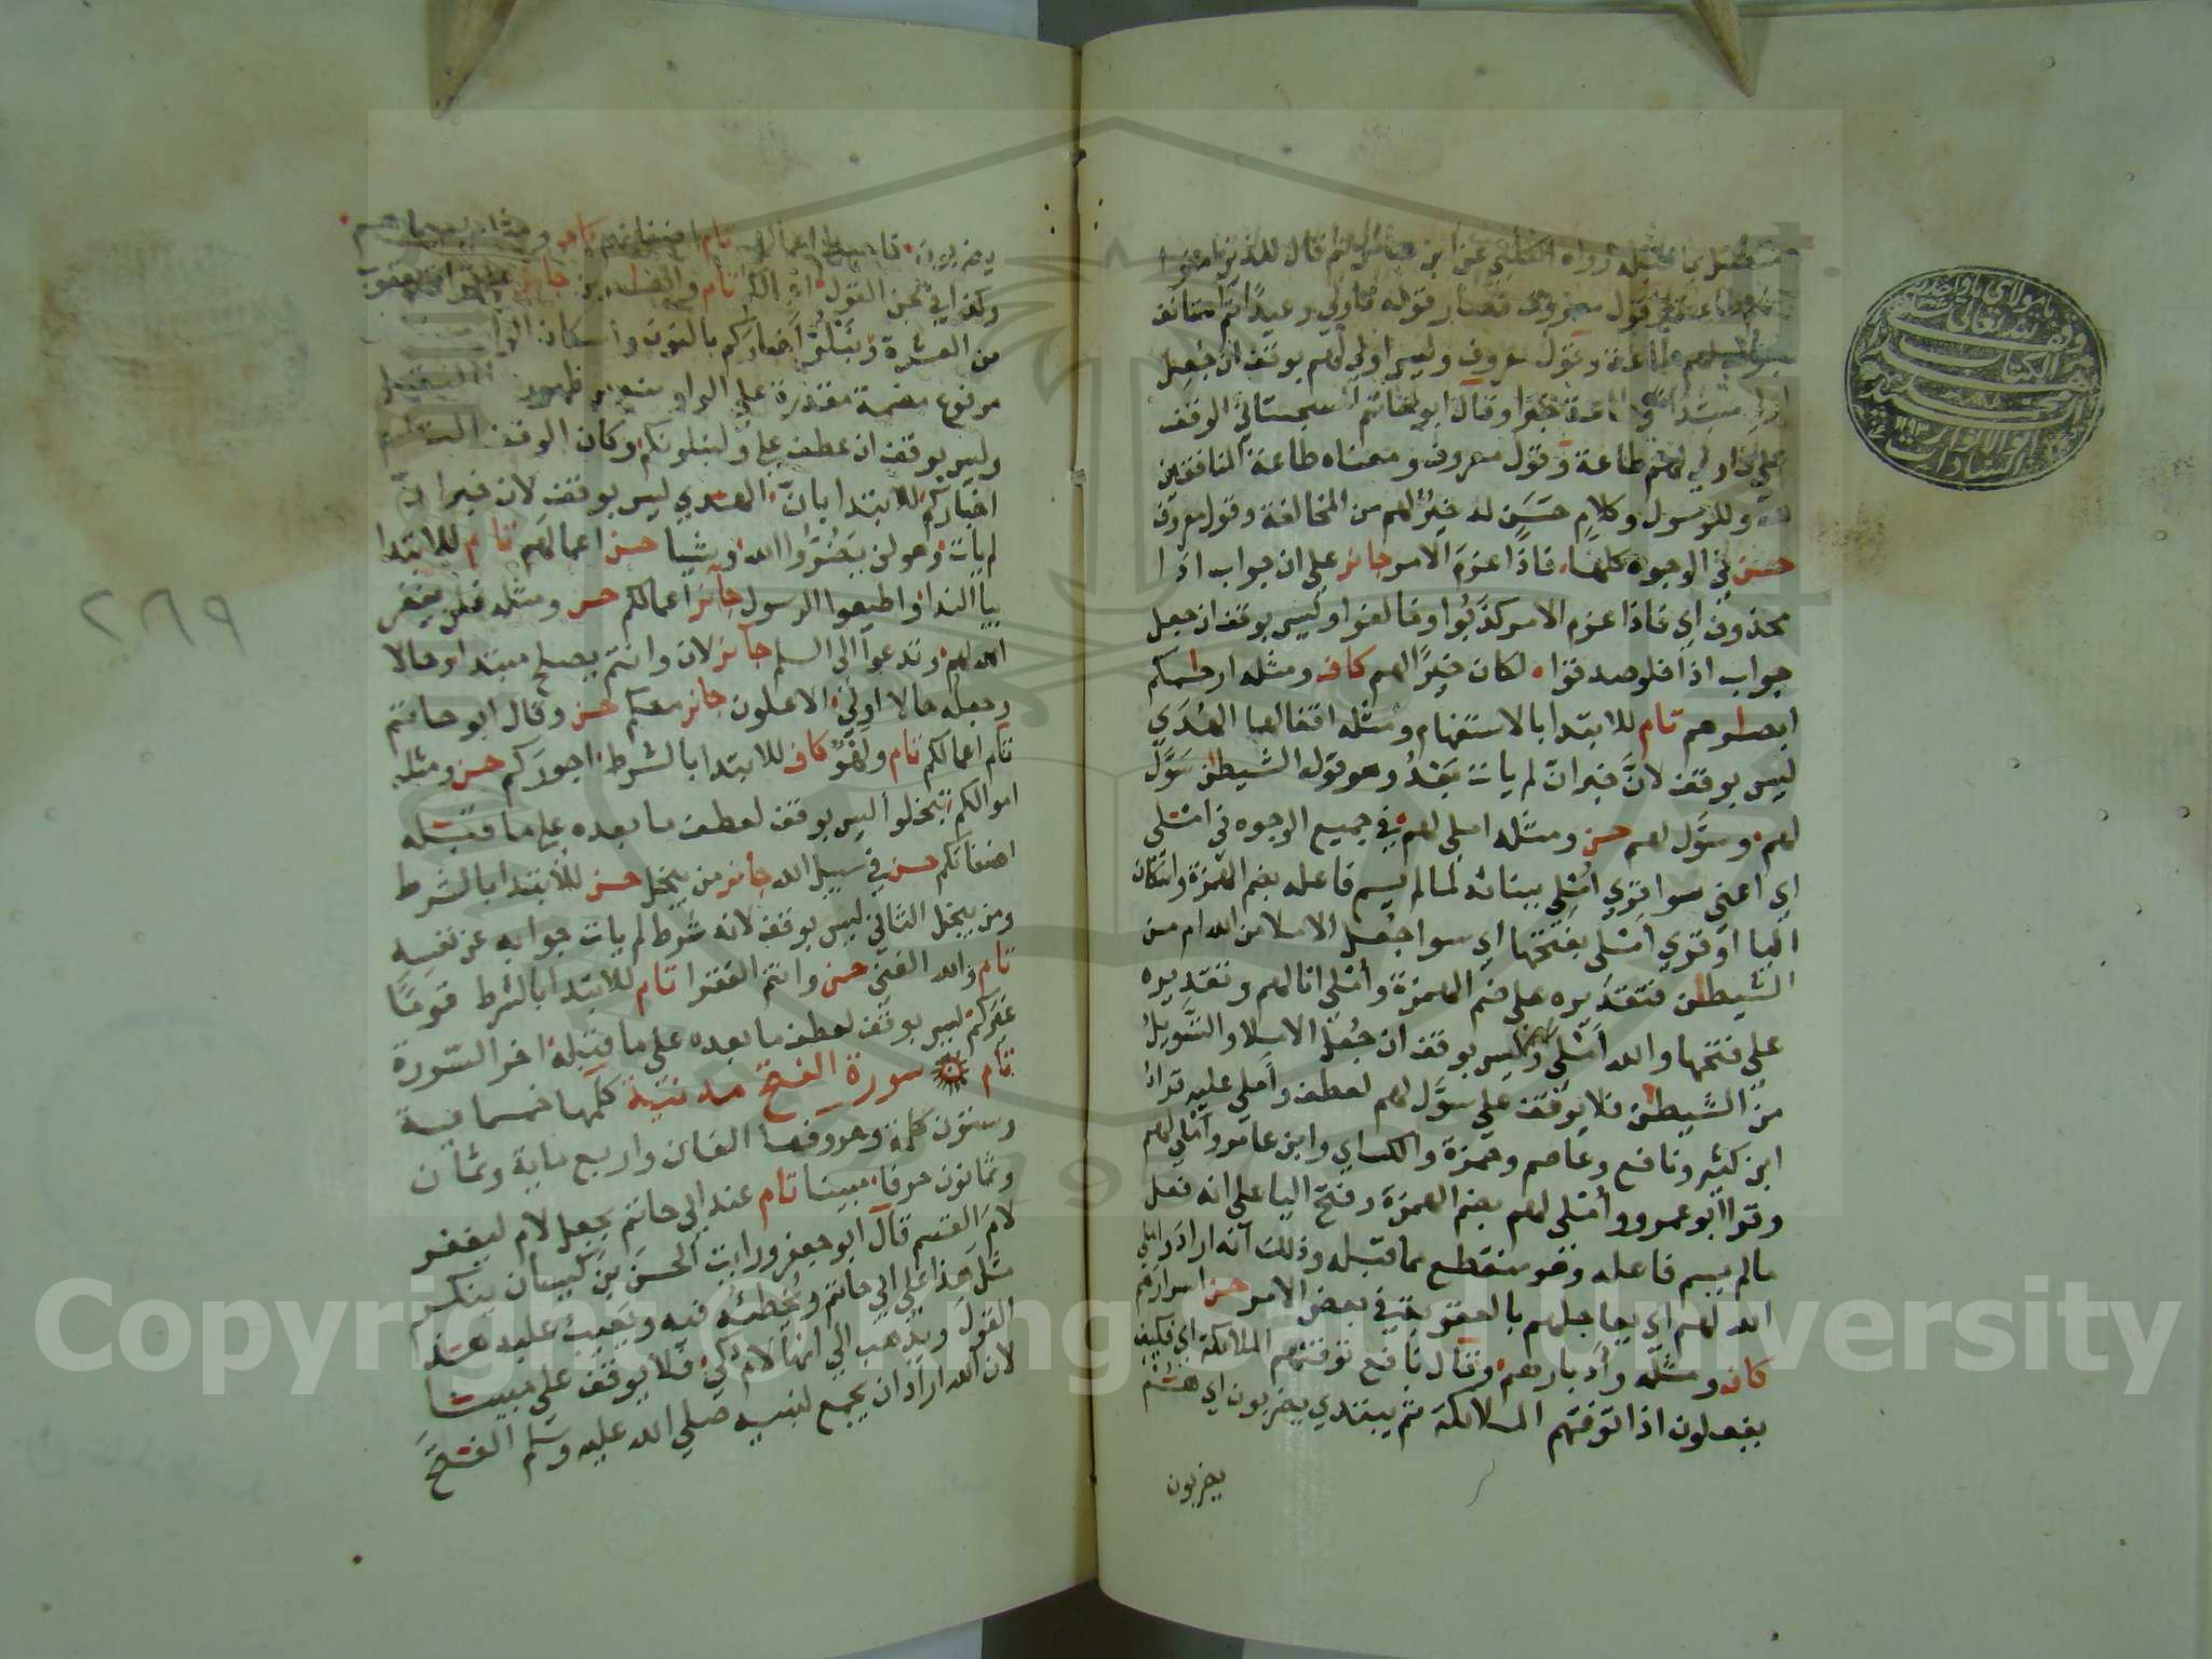 بما قبله رواه الكلبي عن ابن عباس ثم قال للذين امنوا
قول معروف فصار قوله فاولى وعيدا ثم استانف
لهم طاعة وقول معروف وليس اولي لهم بوقف ان جعل
مبتدا طاعة خبرا وقال ابو حاتم السجستاني الوقف
على اولي لهم طاعة وقول معروف ومعناه طاعة المنافقين
لله وللرسول وكلام حَسَن له خيرٌ لهم من المخالفة وقول معروف
حسن في الوجوه كلها فاذا عزم الامر جائز على ان جواب اذا
محذوف اي فاذا عزم الامر كذبوا وخالفوا وليس بوقف ان جعل
جواب اذا فلو صدقوا لكان خيرًا لهم كاف ومثله ارحامكم
ابصارهم تام للابتدا بالاستفهام ومثله اقفالها الهدي
ليس بوقف لانّ خبر انّ لم يات بَعْدُ وهو قوله الشيطن سَوَّل
لهم وسوَّل لهم حسن ومثله املي لهم في جميع الوجوه في املي
اي اعني سوا قري اُمْلِي ببنائه لما لم يسم فاعله بضم الهمزة واسكان
اليا او قري امْلى بفتحها اي سوا جعل الاملا من الله ام من
الشيطن فتقديره على ضم الهمزة وأملي انا لهم وتقديره
على فتحها والله اَمْلى لهم وليس بوقف ان جُعِل الاملا والتسويل
من الشيطن فلا يوقف على سوَّل لهم لعطف وأملي عليه قرا
ابن كثير ونافع وعاصم وحمزة والكساي وابن عامر وأملي لهم
وقرا ابو عمرو وأملي لهم بضم الهمزة وفتح اليا على انه فعل
ما لم يسم فاعله وهو منقطع مما قبله وذلك انه اراد واملي
الله لهم اي يعاجلهم بالعقوبة في بعض الامر حسن اسرارهم
كاف ومثله وادبارهم وقال نافع توفتهم الملائكة اي فكيف
يفعلون اذا توفتهم الملائكة ثم يبتدي يضربون اي هم
يضربون
وقف
يا مولاي يا واحد
لله تعالى
الكتاب
السادات
يضربون فاحبط اعمالهم تام اضغانهم كاف ومثله بسيماهم
وكذا في لحن القول اعمالكم تام والصابرين جائز
من العشرة ونبلوْ اخباركم بالنون واسكان الواو
مرفوع بضمة مقدرة على الواو منع من ظهورها الثقل
وليس بوقف ان عطف على ولنبلونكم وكان الوقف
اخباركم للابتدا بانّ الهدي ليس بوقف لان خبر انّ
لم يات وهو لن يضروا الله وشيا حسن اعمالهم تام للابتدا
بيا الندا واطيعوا الرسول جائز اعمالكم حسن ومثله فلن يغفر
الله لهم وتدعوا الى السلم جائز لان وانتم يصلح مبتدا وحالا
وجعله حالا اولى الاعلون جائز معكم حسن وقال ابو حاتم
تام اعمالكم تام ولهوٌ كاف للابتدا بالشرط اجوركم حسن ومثله
اموالكم تبخلوا ليس بوقف لعطف ما بعده على ما قبله
اضغانكم حسن في سبيل الله جائز من يبخل حسن للابتدا بالشرط
ومن يبخل الثاني ليس بوقف لانه شرط لم يات جوابه عن نفسه
تام والله الغني حسن وانتم الفقرا تام للابتدا بالشرط قومًا
غيركم ليس بوقف لعطف ما بعده على ما قبله اخر السورة
تام سورة الفتح مدنية كلمها خمسماية
وستون كلمة وحروفها الفان واربع ماية وثمان
وثمانون حرفا مبينا تام عند ابي حاتم بجعل لام ليغفر
لامَ القسم قال ابو جعفر ورايت الحسن بن كيسان ينكر
مثل هذا على ابي حاتم ويُخطئه فيه ويَعيب عليه هذا
القول ويذهب الي انها لام كي فلا يوقف على مبينا
لان الله اراد ان يجمع لنبيه صلي الله عليه وسلم الفتح
٢٨٩
1957
Copyright © King Saud University